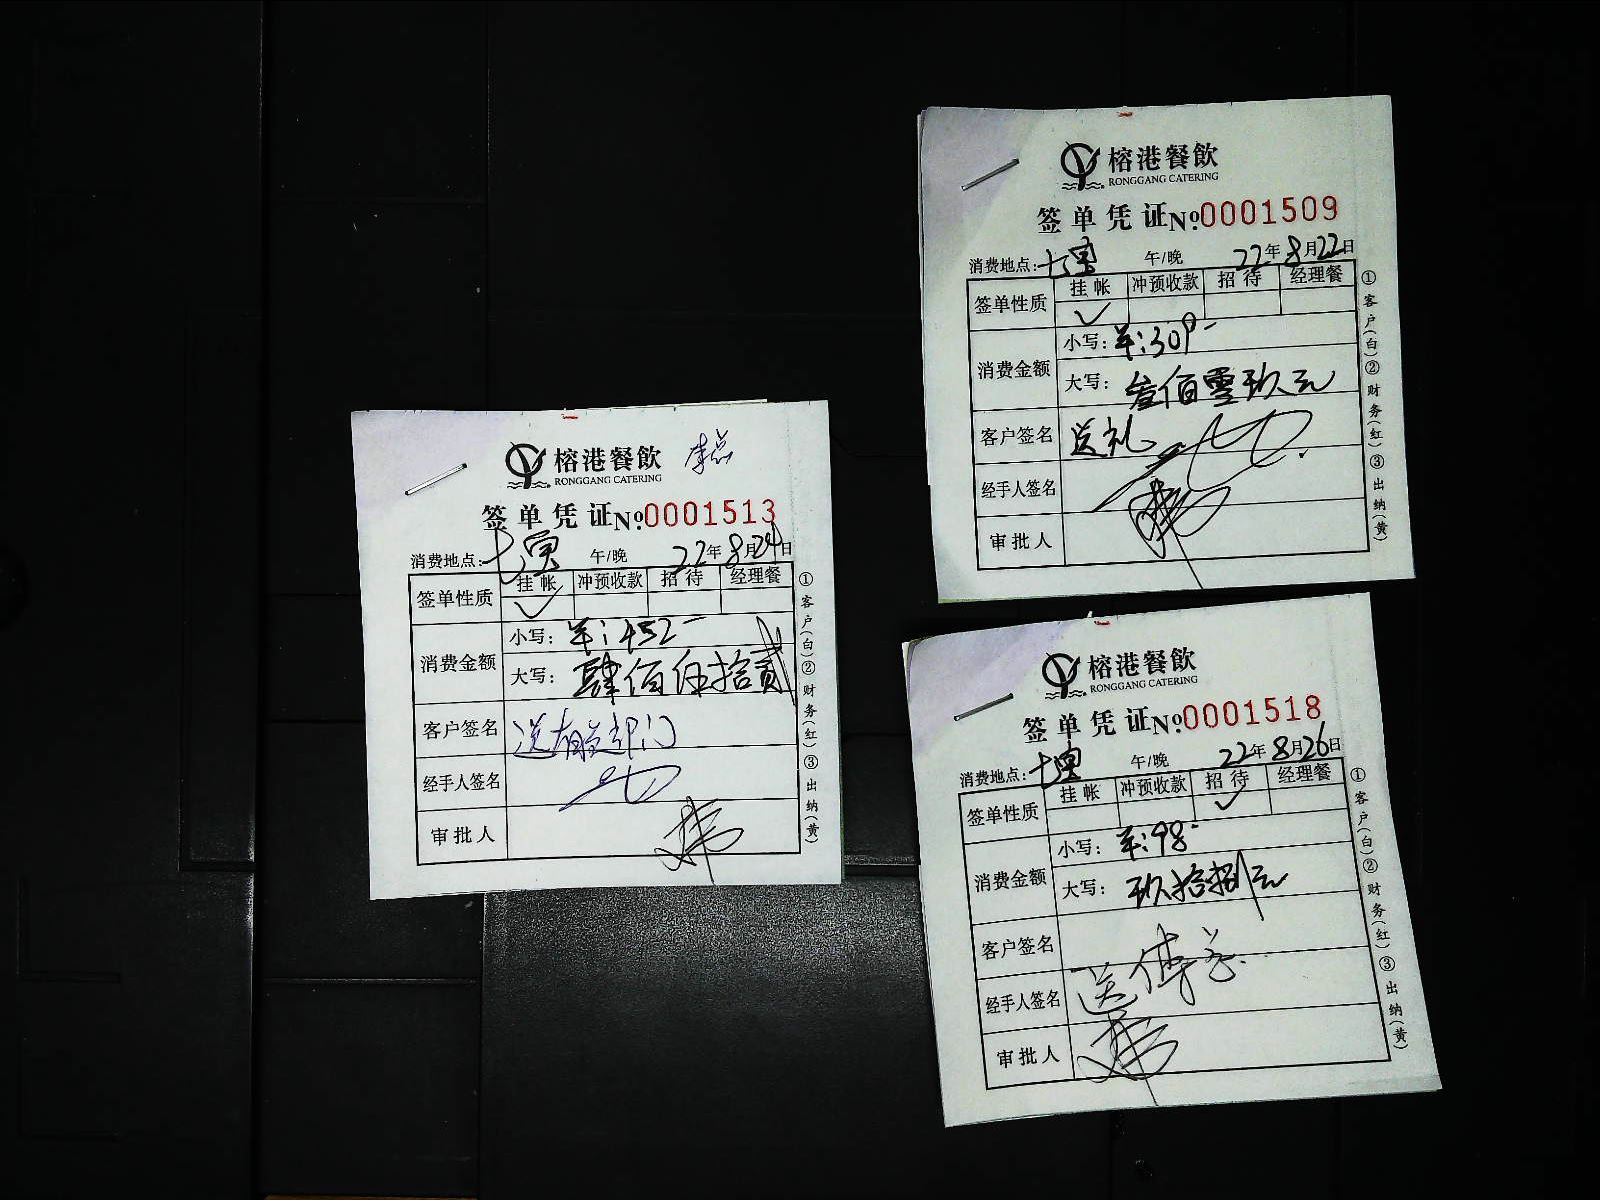 榕港餐飲 李总
RONGGANG CATERING
签单凭证 №0001513
消费地点: 午/晚 22年8月24日
签单性质 挂帐 冲预收款 招待 经理餐
✓
消费金额 小写: ¥:452-
大写: 肆佰伍拾贰
客户签名 送有关部门
经手人签名
审批人
①客户(白)②财务(红)③出纳(黄)
榕港餐飲
RONGGANG CATERING
签单凭证 №0001509
消费地点: 午/晚 22年8月22日
签单性质 挂帐 冲预收款 招待 经理餐
✓
消费金额 小写: ¥:309-
大写: 叁佰零玖元
客户签名 送礼
经手人签名
审批人
①客户(白)②财务(红)③出纳(黄)
榕港餐飲
RONGGANG CATERING
签单凭证 №0001518
消费地点: 午/晚 22年8月26日
签单性质 挂帐 冲预收款 招待 经理餐
✓
消费金额 小写: ¥:98-
大写: 玖拾捌元
客户签名
经手人签名 送
审批人
①客户(白)②财务(红)③出纳(黄)